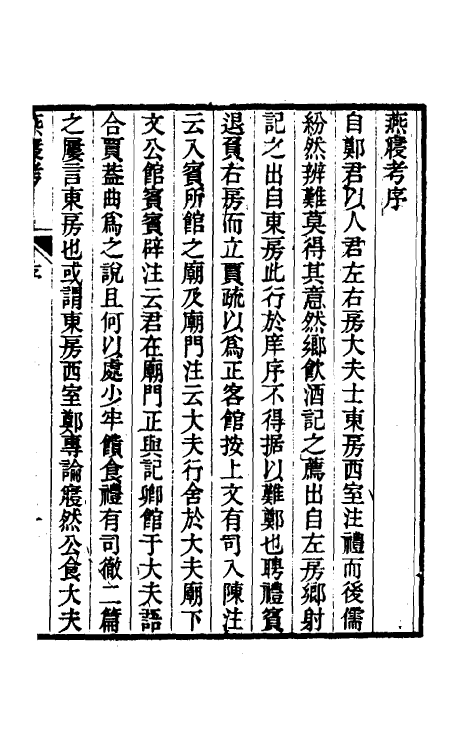 燕寢考序
自鄭君以人君左右房大夫士東房西室注禮而後儒
紛然辨難莫得其意然鄉飲酒記之薦出自左房鄉射
記之出自東房此行於庠序不得据以難鄭也聘禮賓
退負右房而立賈疏以爲正客館按上文有司入陳注
云入賓所館之廟及廟門注云大夫行舍於大夫廟下
文公館賓賓辟注云君在廟門正與記卿館于大夫語
合賈葢曲爲之說且何以處少牢饋食禮有司徹二篇
之屢言東房也或謂東房西室鄭專論寢然公食大夫
燕寢考
序
一